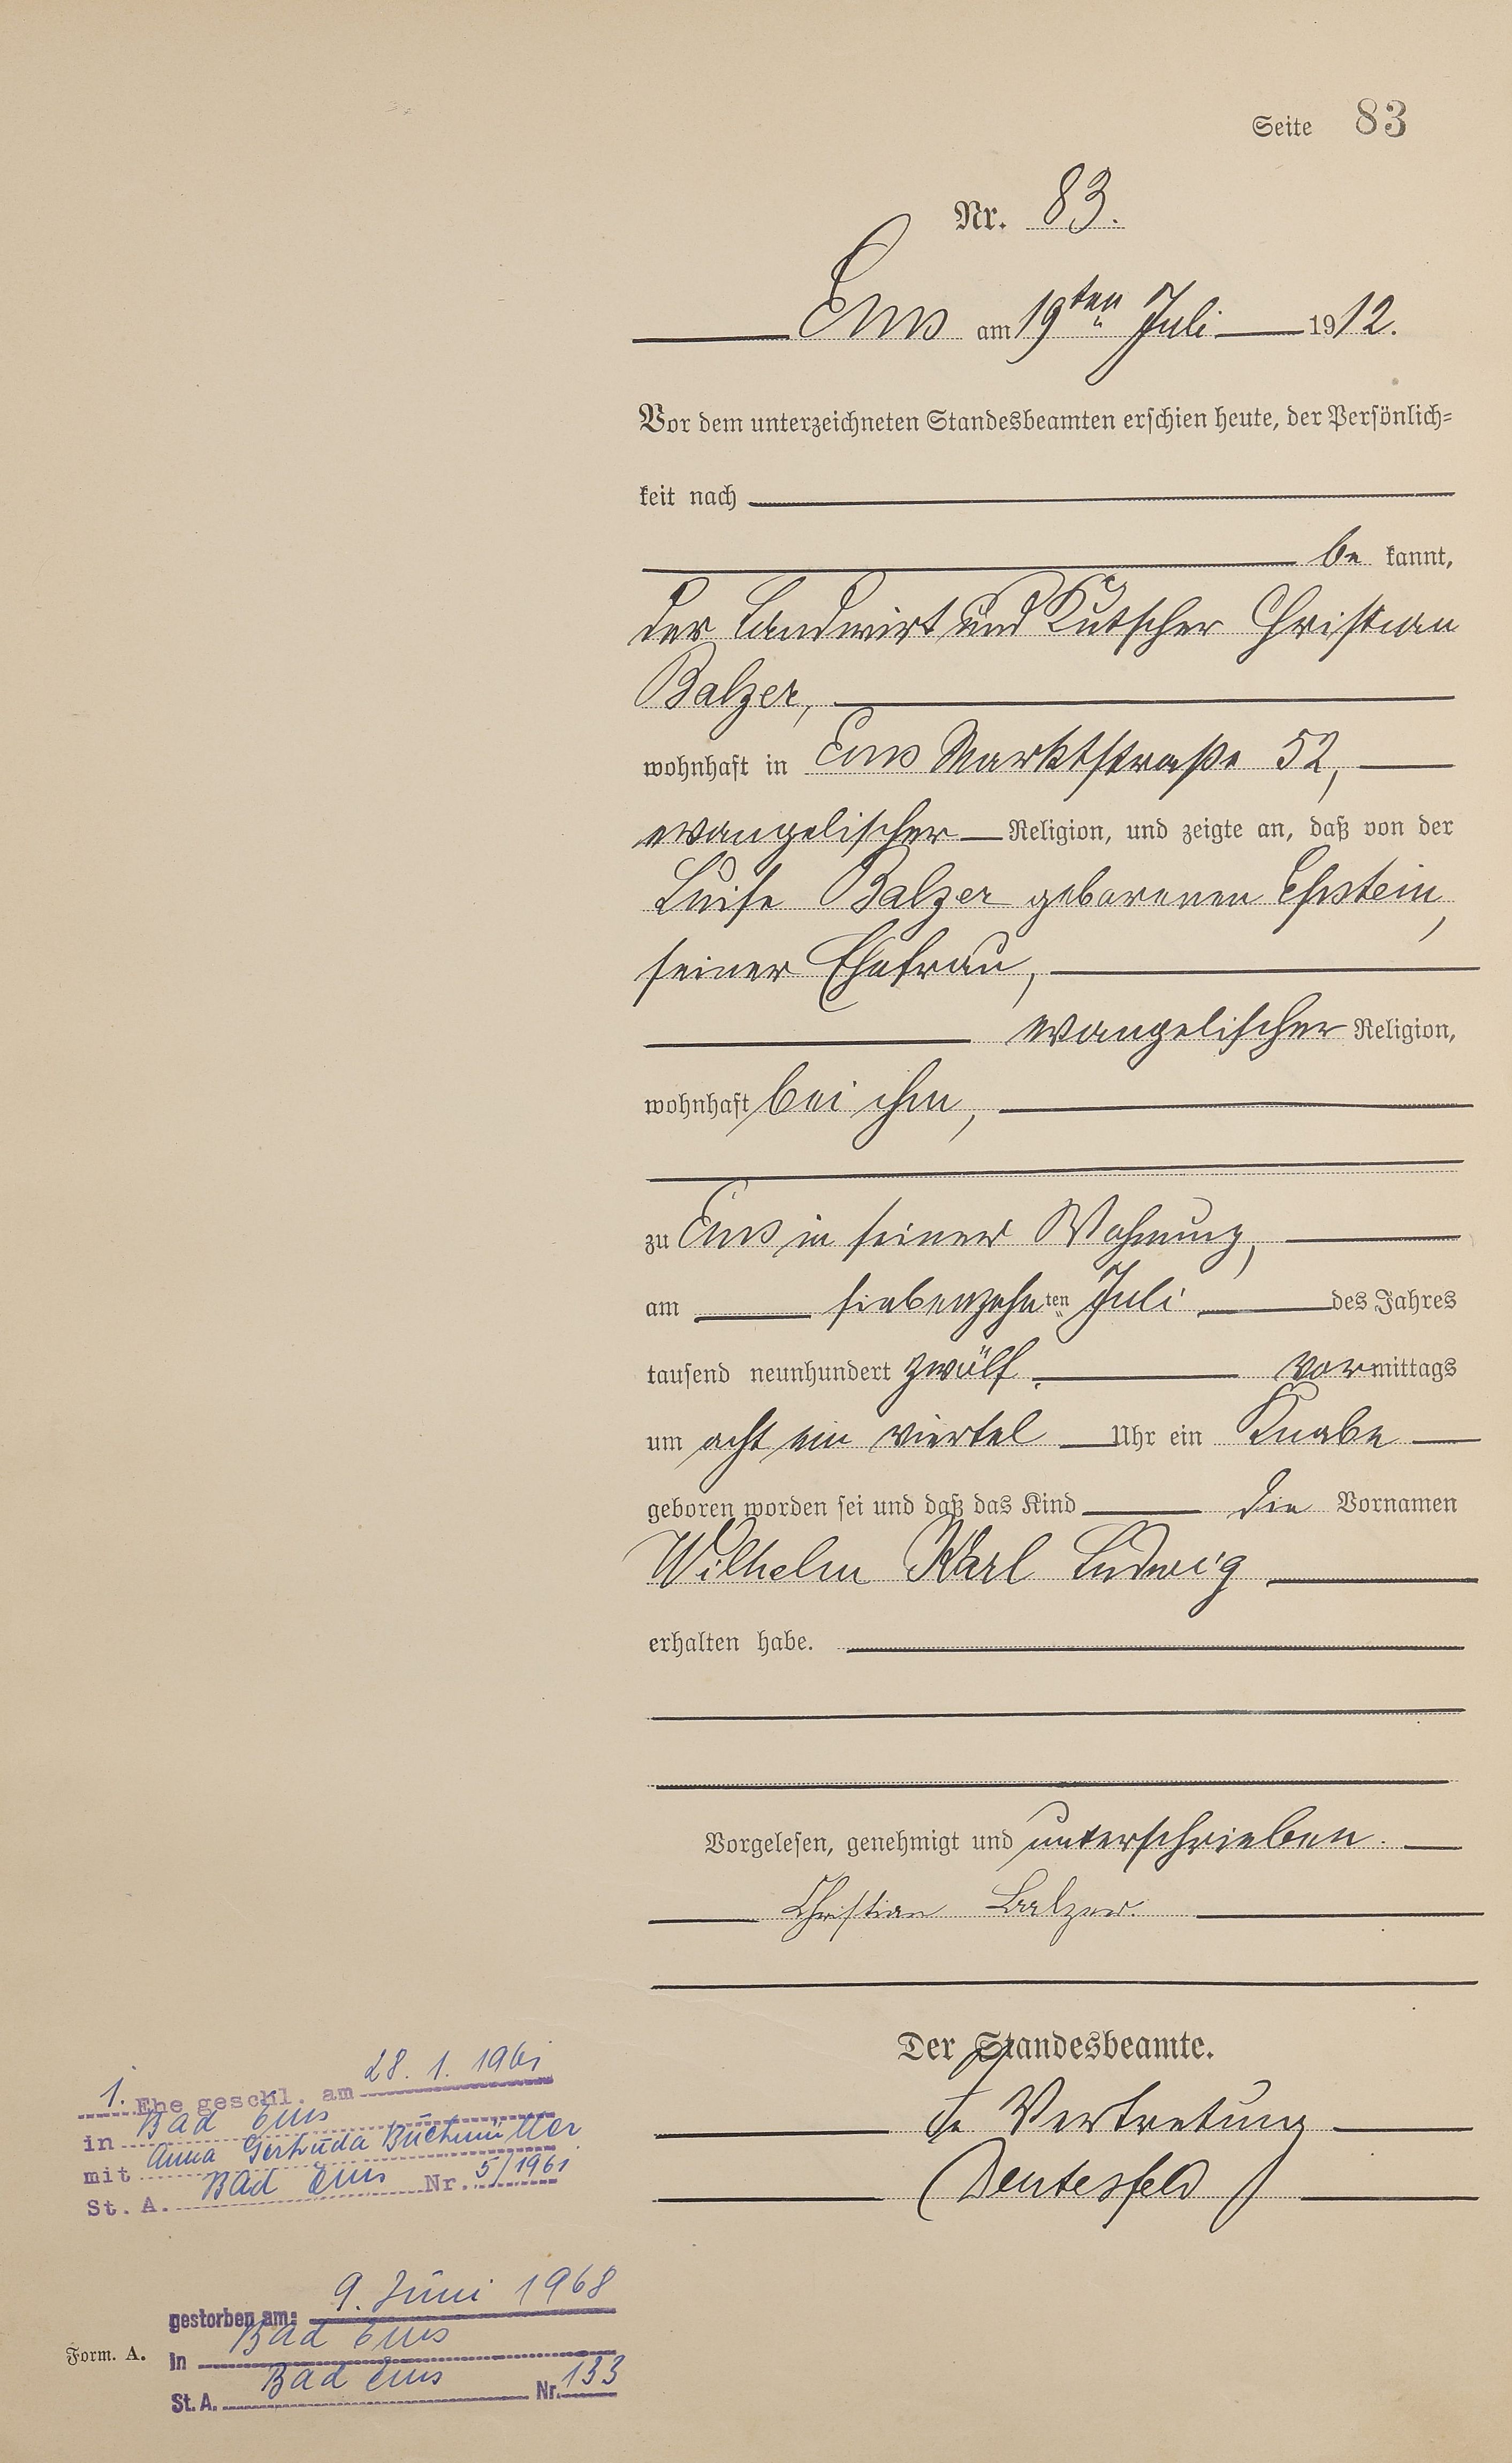 Seite 83
Nr. 83.
Ems am 19ten Juli 1912.
Vor dem unterzeichneten Standesbeamten erschien heute, der Persönlich-
keit nach
be kannt,
der Landwirt und Kutscher Christian
Balzer,
wohnhaft in Ems Marktstraße 52,
evangelischer Religion, und zeigte an, daß von der
Luise Balzer geborenen Ehstein,
seiner Ehefrau,
evangelischer Religion,
wohnhaft bei ihm,
zu Ems in seiner Wohnung,
am siebenzehnten Juli des Jahres
tausend neunhundert zwölf vormittags
um acht ein viertel Uhr ein Knabe
geboren worden sei und daß das Kind die Vornamen
Wilhelm Karl Ludwig
erhalten habe.
Vorgelesen, genehmigt und unterschrieben.
Christian Balzer.
Der Standesbeamte.
In Vertretung
(Deutesfeld)
1. Ehe geschl. am 28. 1. 1961
in Bad Ems
mit Anna Gertruda Buchmüller
St. A. Bad Ems Nr. 5/1961
gestorben am: 9. Juni 1968
in Bad Ems
St. A. Bad Ems Nr. 133
Form. A.